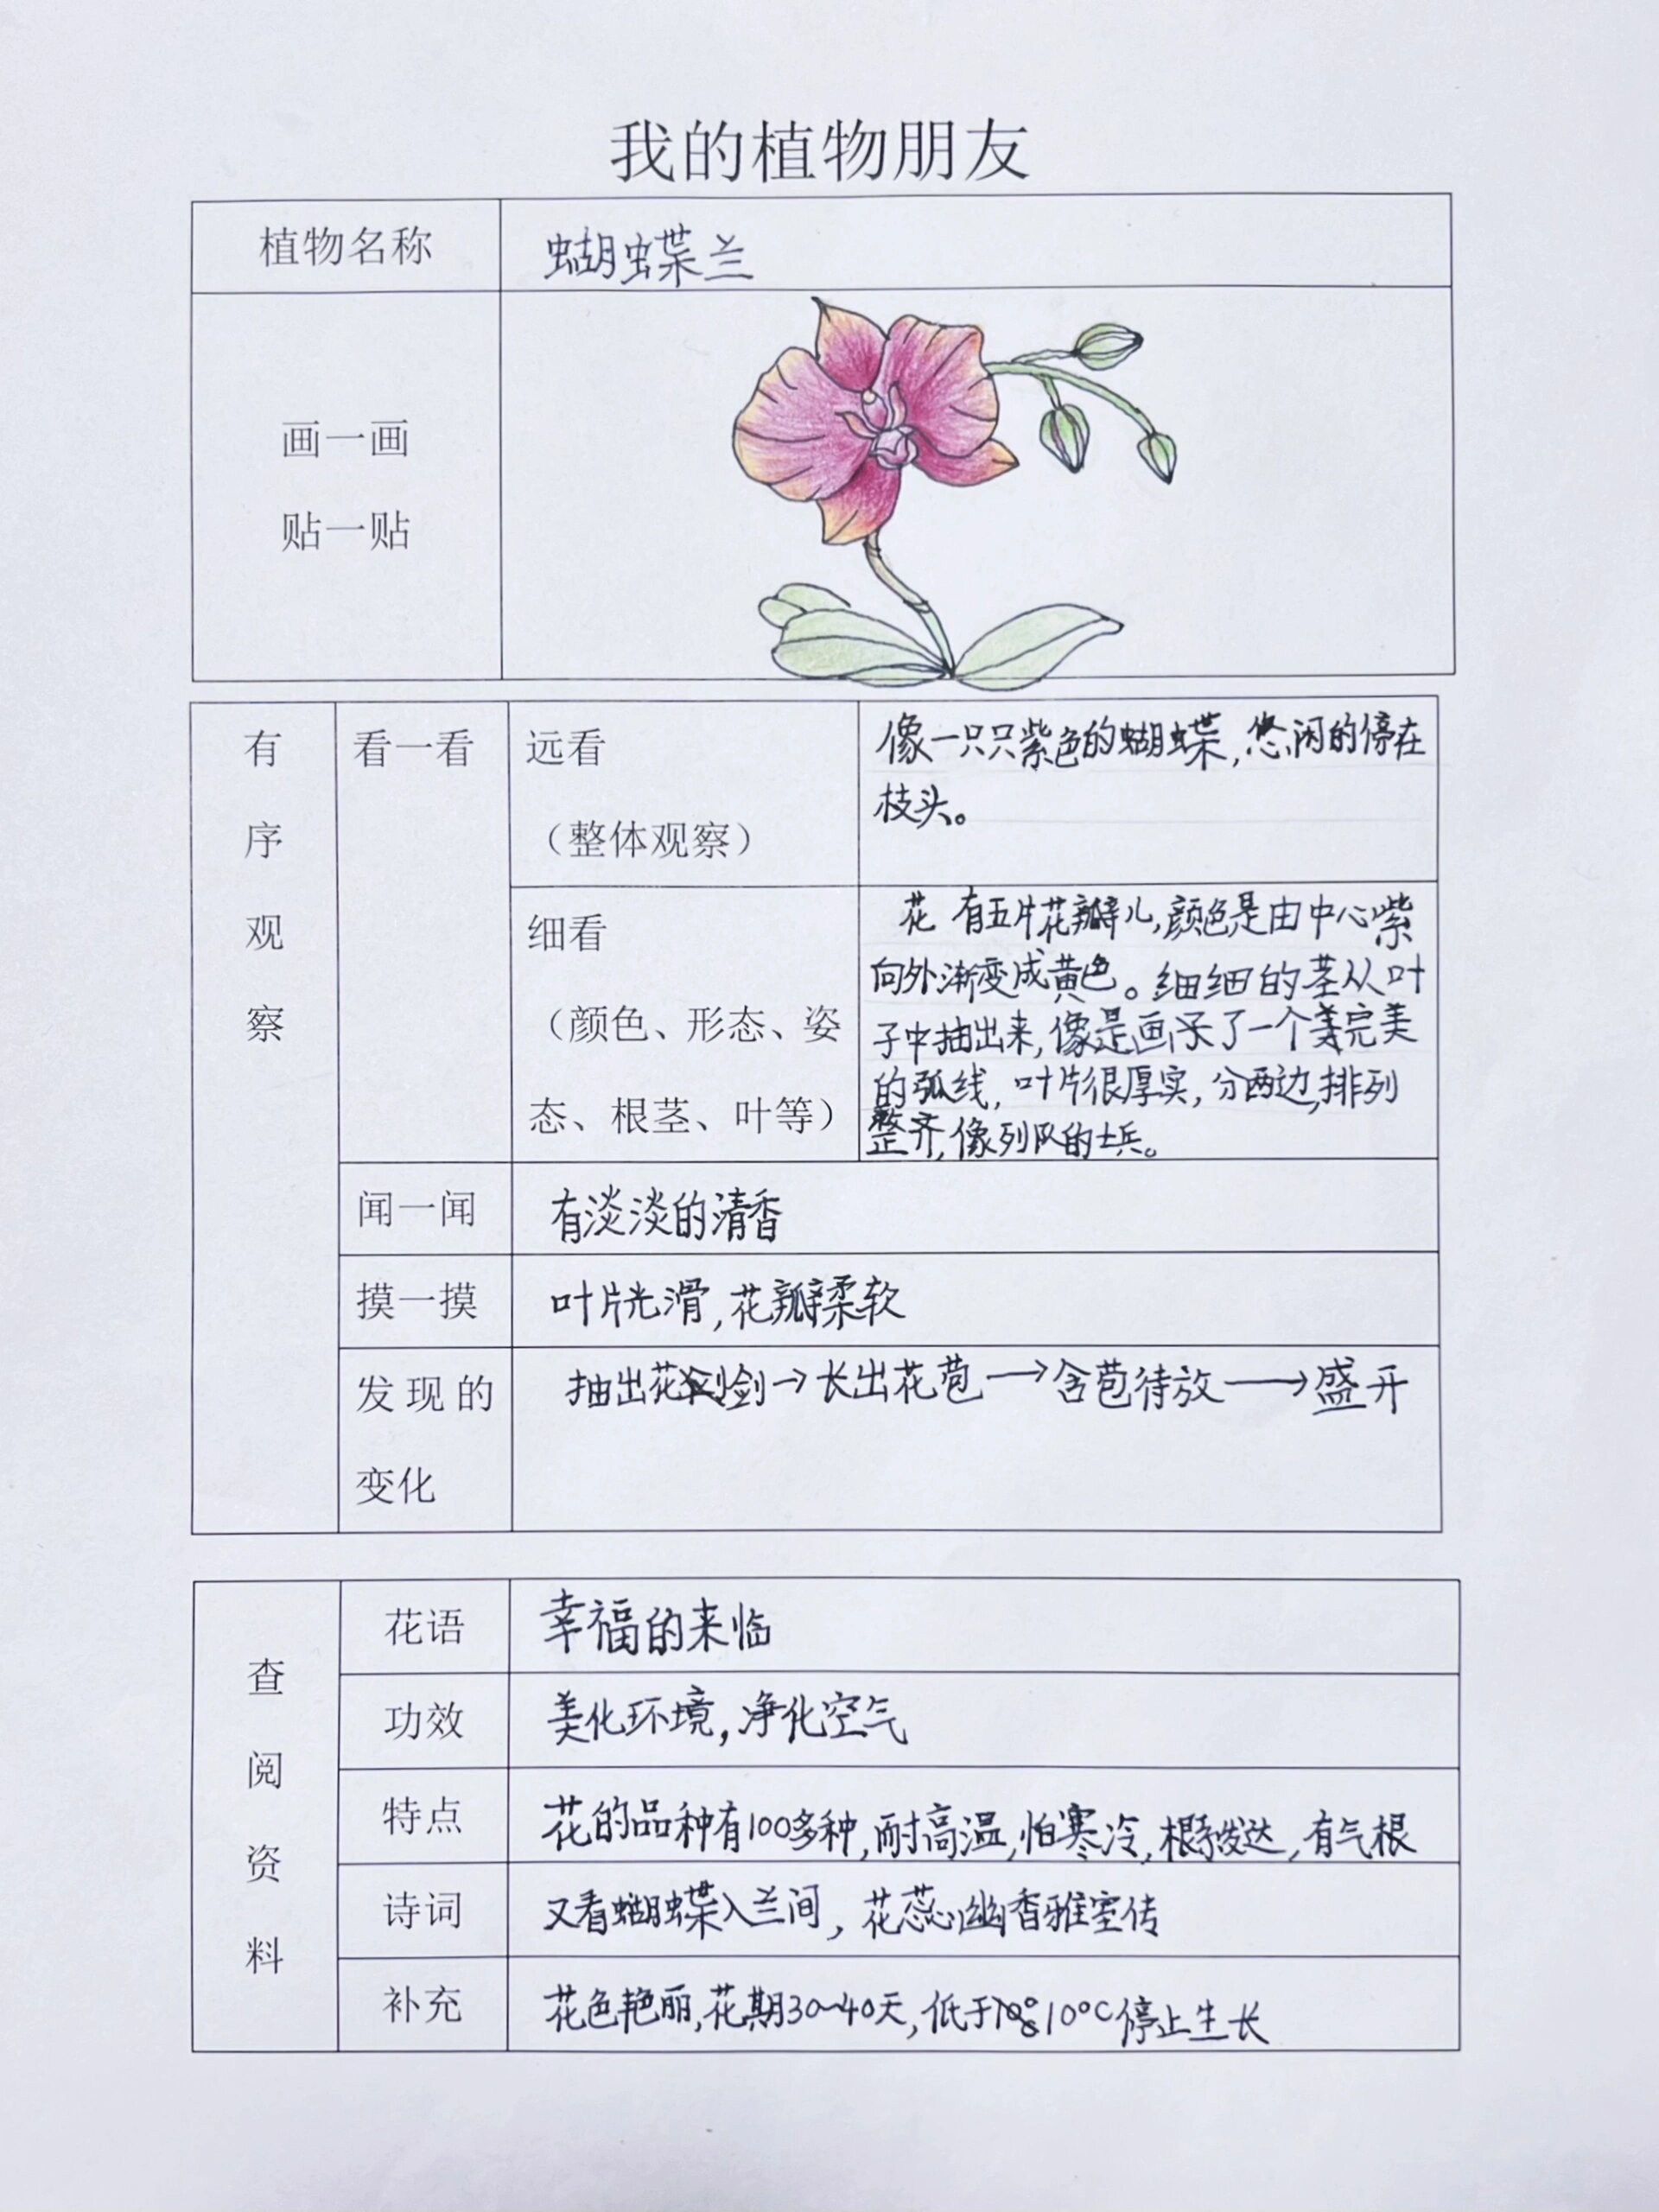 我的植物朋友
植物名称
蝴蝶兰
画一画
贴一贴
有序观察
看一看
远看
（整体观察）
像一只只紫色的蝴蝶，悠闲的停在
枝头。
细看
（颜色、形态、姿
态、根茎、叶等）
花 有五片花瓣儿，颜色是由中心紫
向外渐变成黄色。细细的茎从叶
子中抽出来，像是画了一个完美
的弧线，叶片很厚实，分两边，排列
整齐，像列队的士兵。
闻一闻
有淡淡的清香
摸一摸
叶片光滑，花瓣柔软
发现的
变化
抽出花剑→长出花苞→含苞待放→盛开
查阅资料
花语
幸福的来临
功效
美化环境，净化空气
特点
花的品种有100多种，耐高温，怕寒冷，根系发达，有气根
诗词
又看蝴蝶入兰间，花蕊幽香雅室传
补充
花色艳丽，花期30~40天，低于10°C停止生长